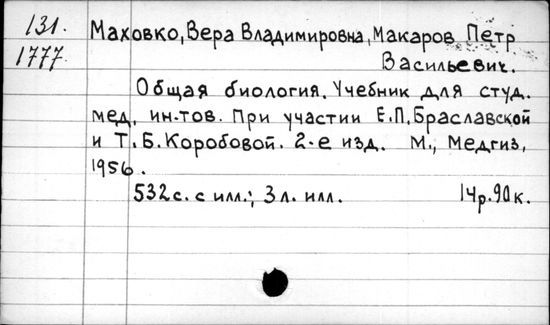 131.
1777.
Маховко, Вера Владимировна, Макаров Петр
Васильевич.
Общая биология. Учебник для студ.
мед. ин-тов. При участии Е.П. Браславской
и Т.Б. Коробовой. 2-е изд. М., Медгиз,
1956.
532 с. с илл.; 3 л. илл. 14р. 90к.